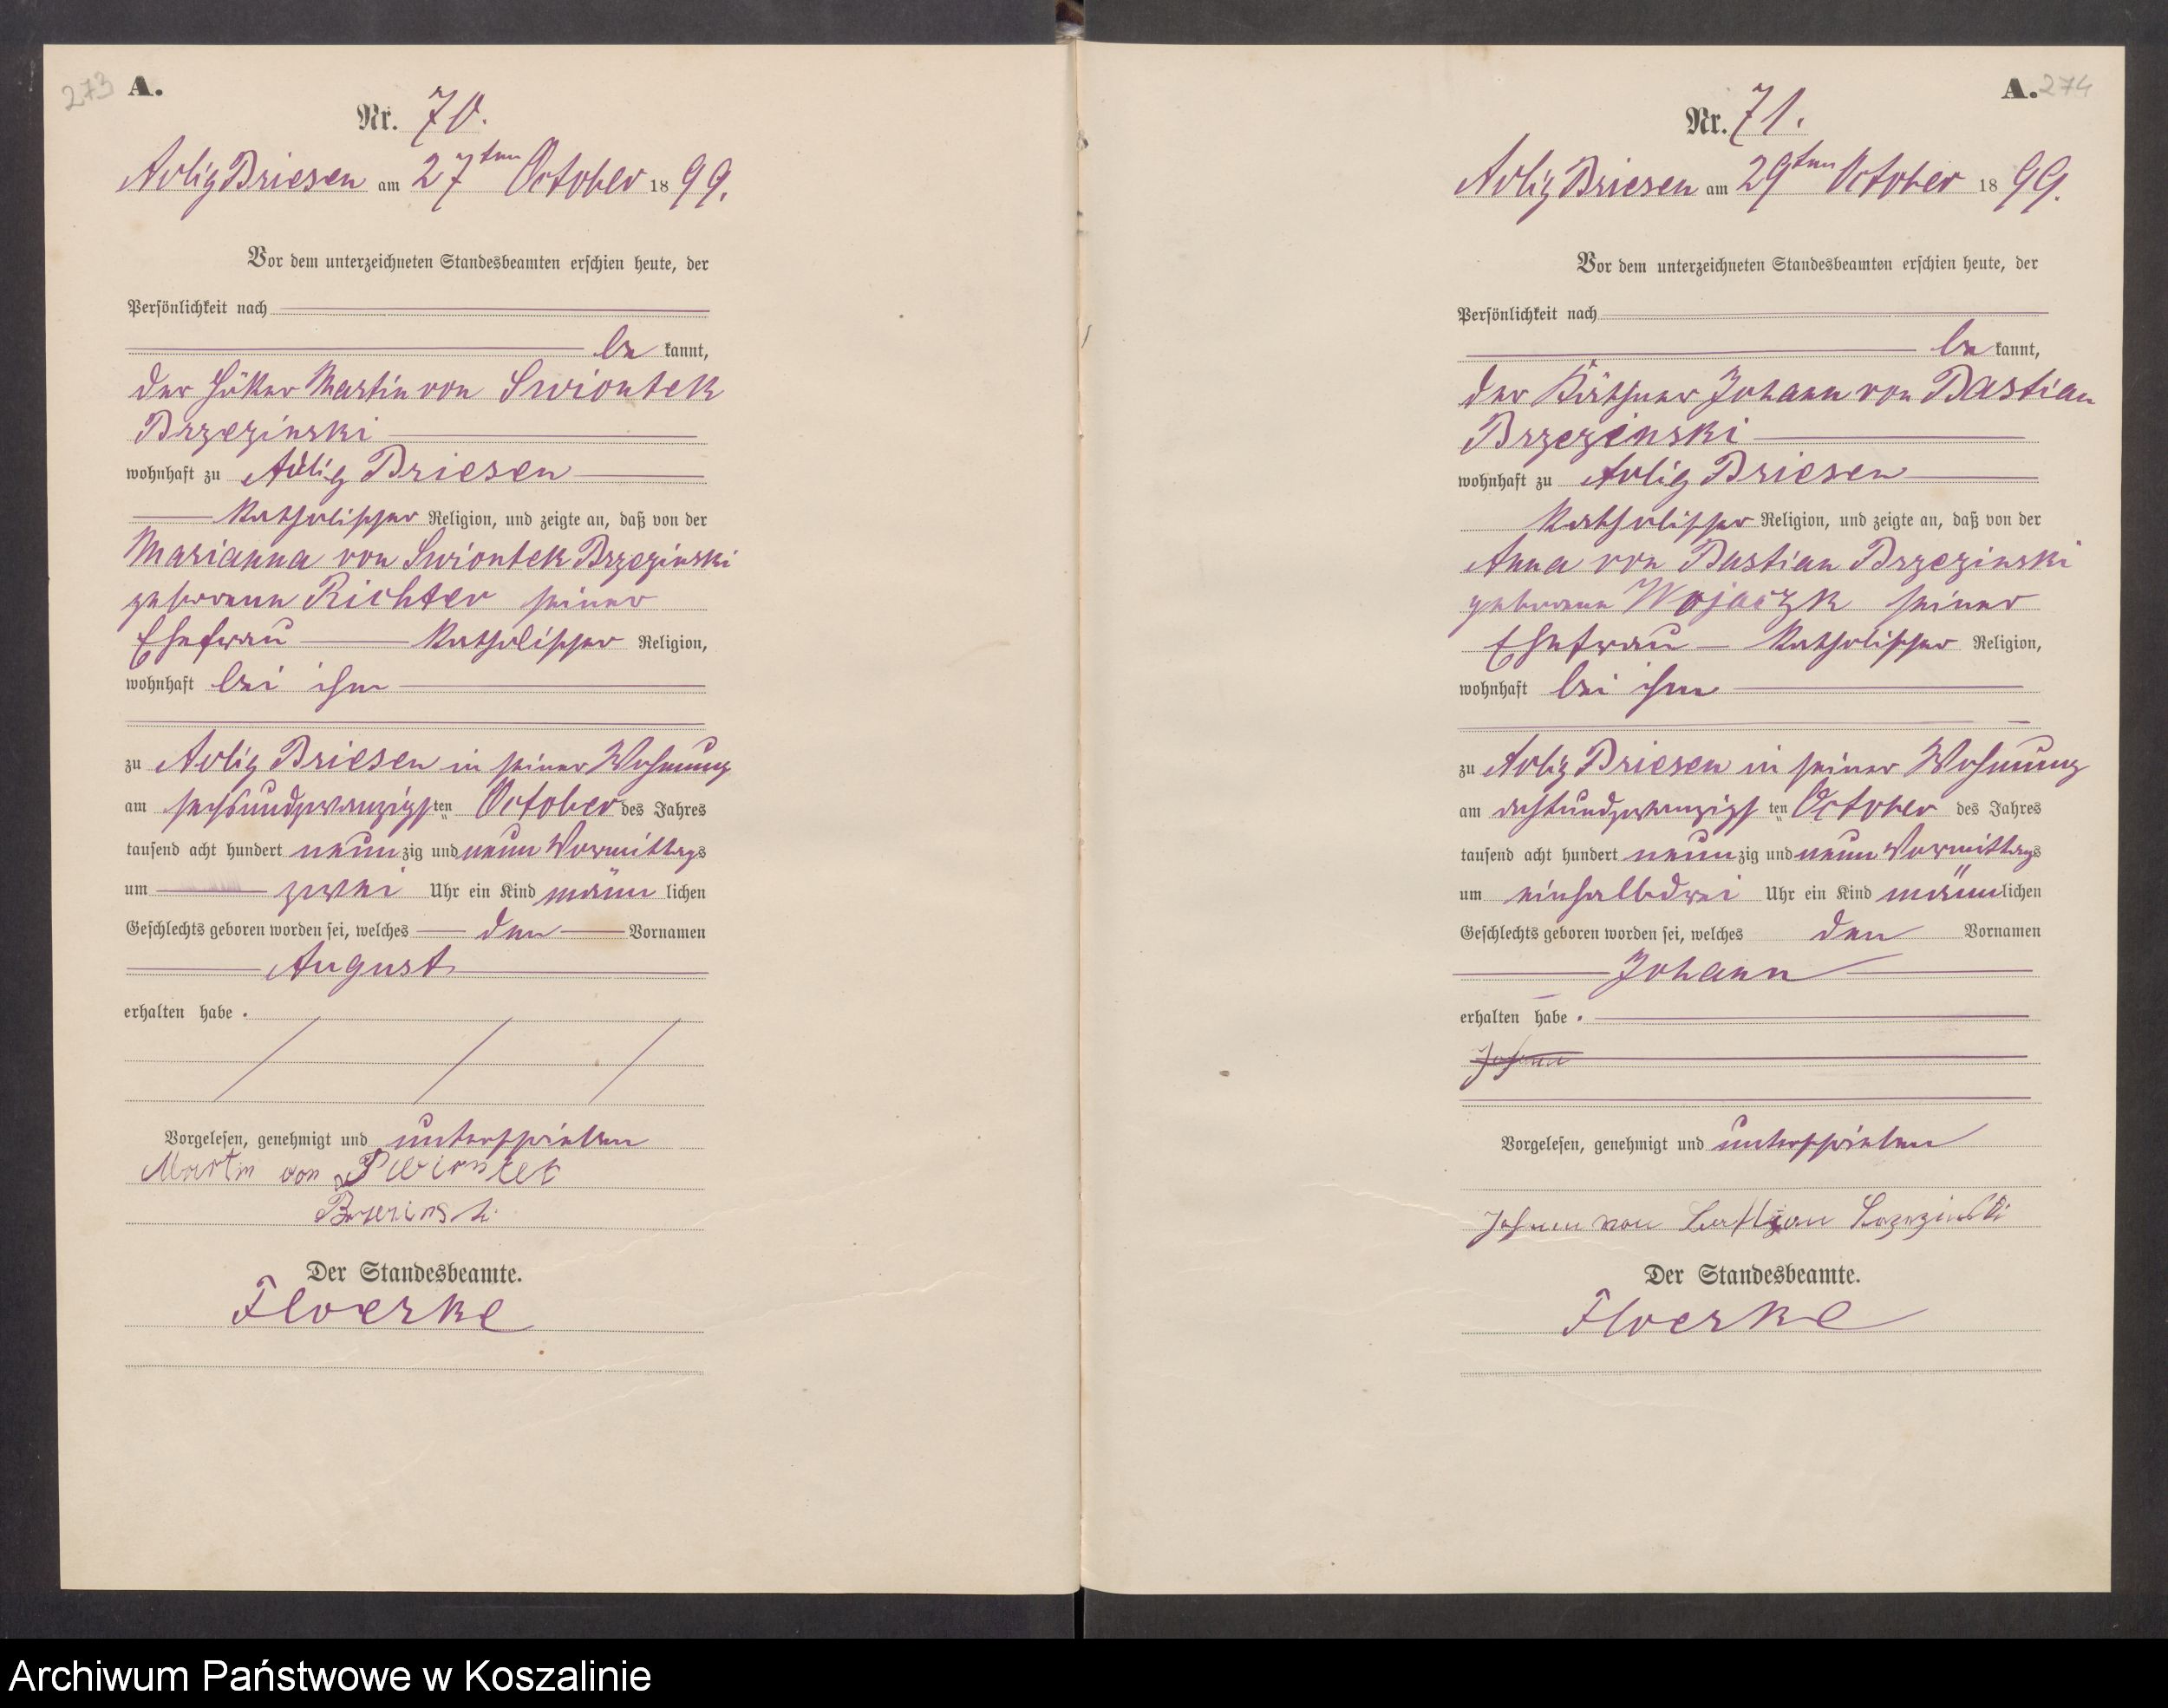 273
A.
Nr. 70.
Adlig Briesen am 27ten October 1899.
Vor dem unterzeichneten Standesbeamten erschien heute, der
Persönlichkeit nach
be kannt,
der Höker Martin von Swiontek
Brzezinski
wohnhaft zu Adlig Briesen
katholischer Religion, und zeigte an, daß von der
Marianna von Swiontek Brzezinski
geborene Richter seiner
Ehefrau katholischer Religion,
wohnhaft bei ihm
zu Adlig Briesen in seiner Wohnung
am sechsundzwanzigsten October des Jahres
tausend acht hundert neunzig und neun Vormittags
um zwei Uhr ein Kind männlichen
Geschlechts geboren worden sei, welches den Vornamen
August
erhalten habe.
Vorgelesen, genehmigt und unterschrieben
Martin von Swiontek
Brzezinski
Der Standesbeamte.
Floerke
A. 274
Nr. 71.
Adlig Briesen am 29ten October 1899.
Vor dem unterzeichneten Standesbeamten erschien heute, der
Persönlichkeit nach
be kannt,
der Käthner Johann von Bastian
Brzezinski
wohnhaft zu Adlig Briesen
katholischer Religion, und zeigte an, daß von der
Anna von Bastian Brzezinski
geborene Wojaczk seiner
Ehefrau katholischer Religion,
wohnhaft bei ihm
zu Adlig Briesen in seiner Wohnung
am achtundzwanzigsten October des Jahres
tausend acht hundert neunzig und neun Vormittags
um einhalbdrei Uhr ein Kind männlichen
Geschlechts geboren worden sei, welches den Vornamen
Johann
erhalten habe.
Johann
Vorgelesen, genehmigt und unterschrieben
Johann von Bastian Brzezinski
Der Standesbeamte.
Floerke
Archiwum Państwowe w Koszalinie